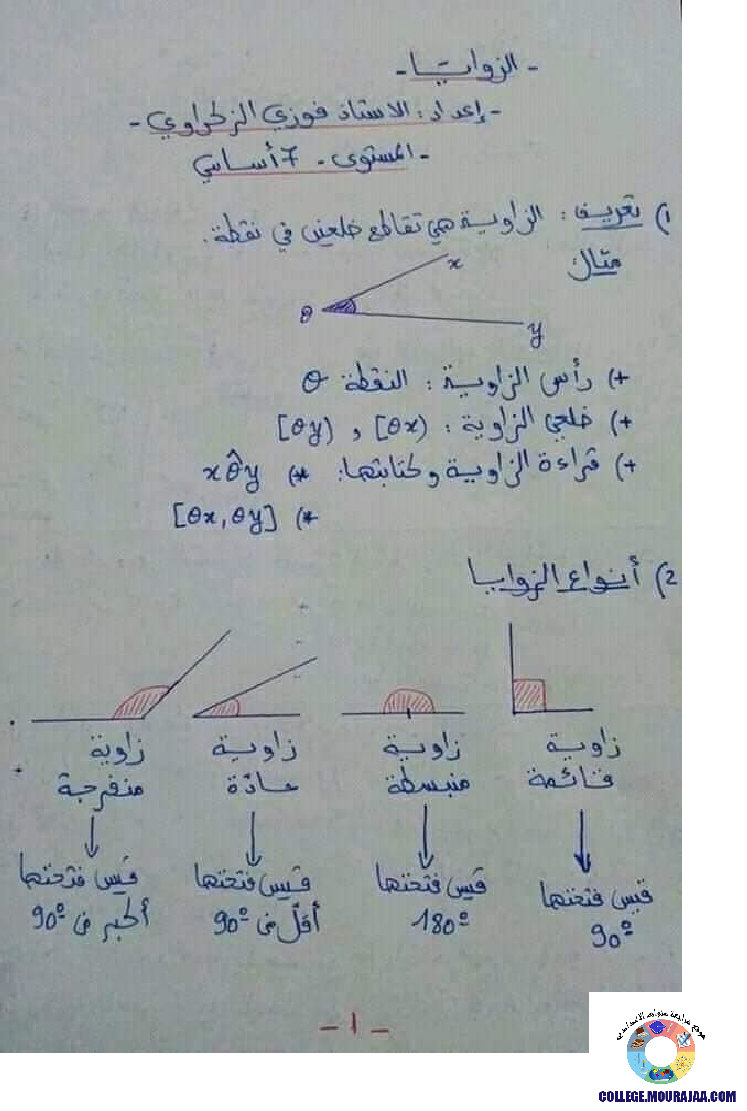 - الزوايا -
- إعداد : الاستاذ فوزي الزكراوي -
- المستوى - 7 أساسي
1) تعريف : الزاوية هي تقاطع ضلعين في نقطة.
مثال :
x
θ
y
+) رأس الزاوية : النقطة θ
+) ضلعي الزاوية : [θx) و [θy)
+) قراءة الزاوية و كتابتها: *) xθ̂y
*) [θx, θy]
2) أنواع الزوايا
زاوية قائمة
زاوية منبسطة
زاوية حادّة
زاوية منفرجة
قيس فتحتها 90°
قيس فتحتها 180°
قيس فتحتها أقلّ من 90°
قيس فتحتها أكبر من 90°
- 1 -
موقع مراجعة
COLLEGE.MOURAJAA.COM